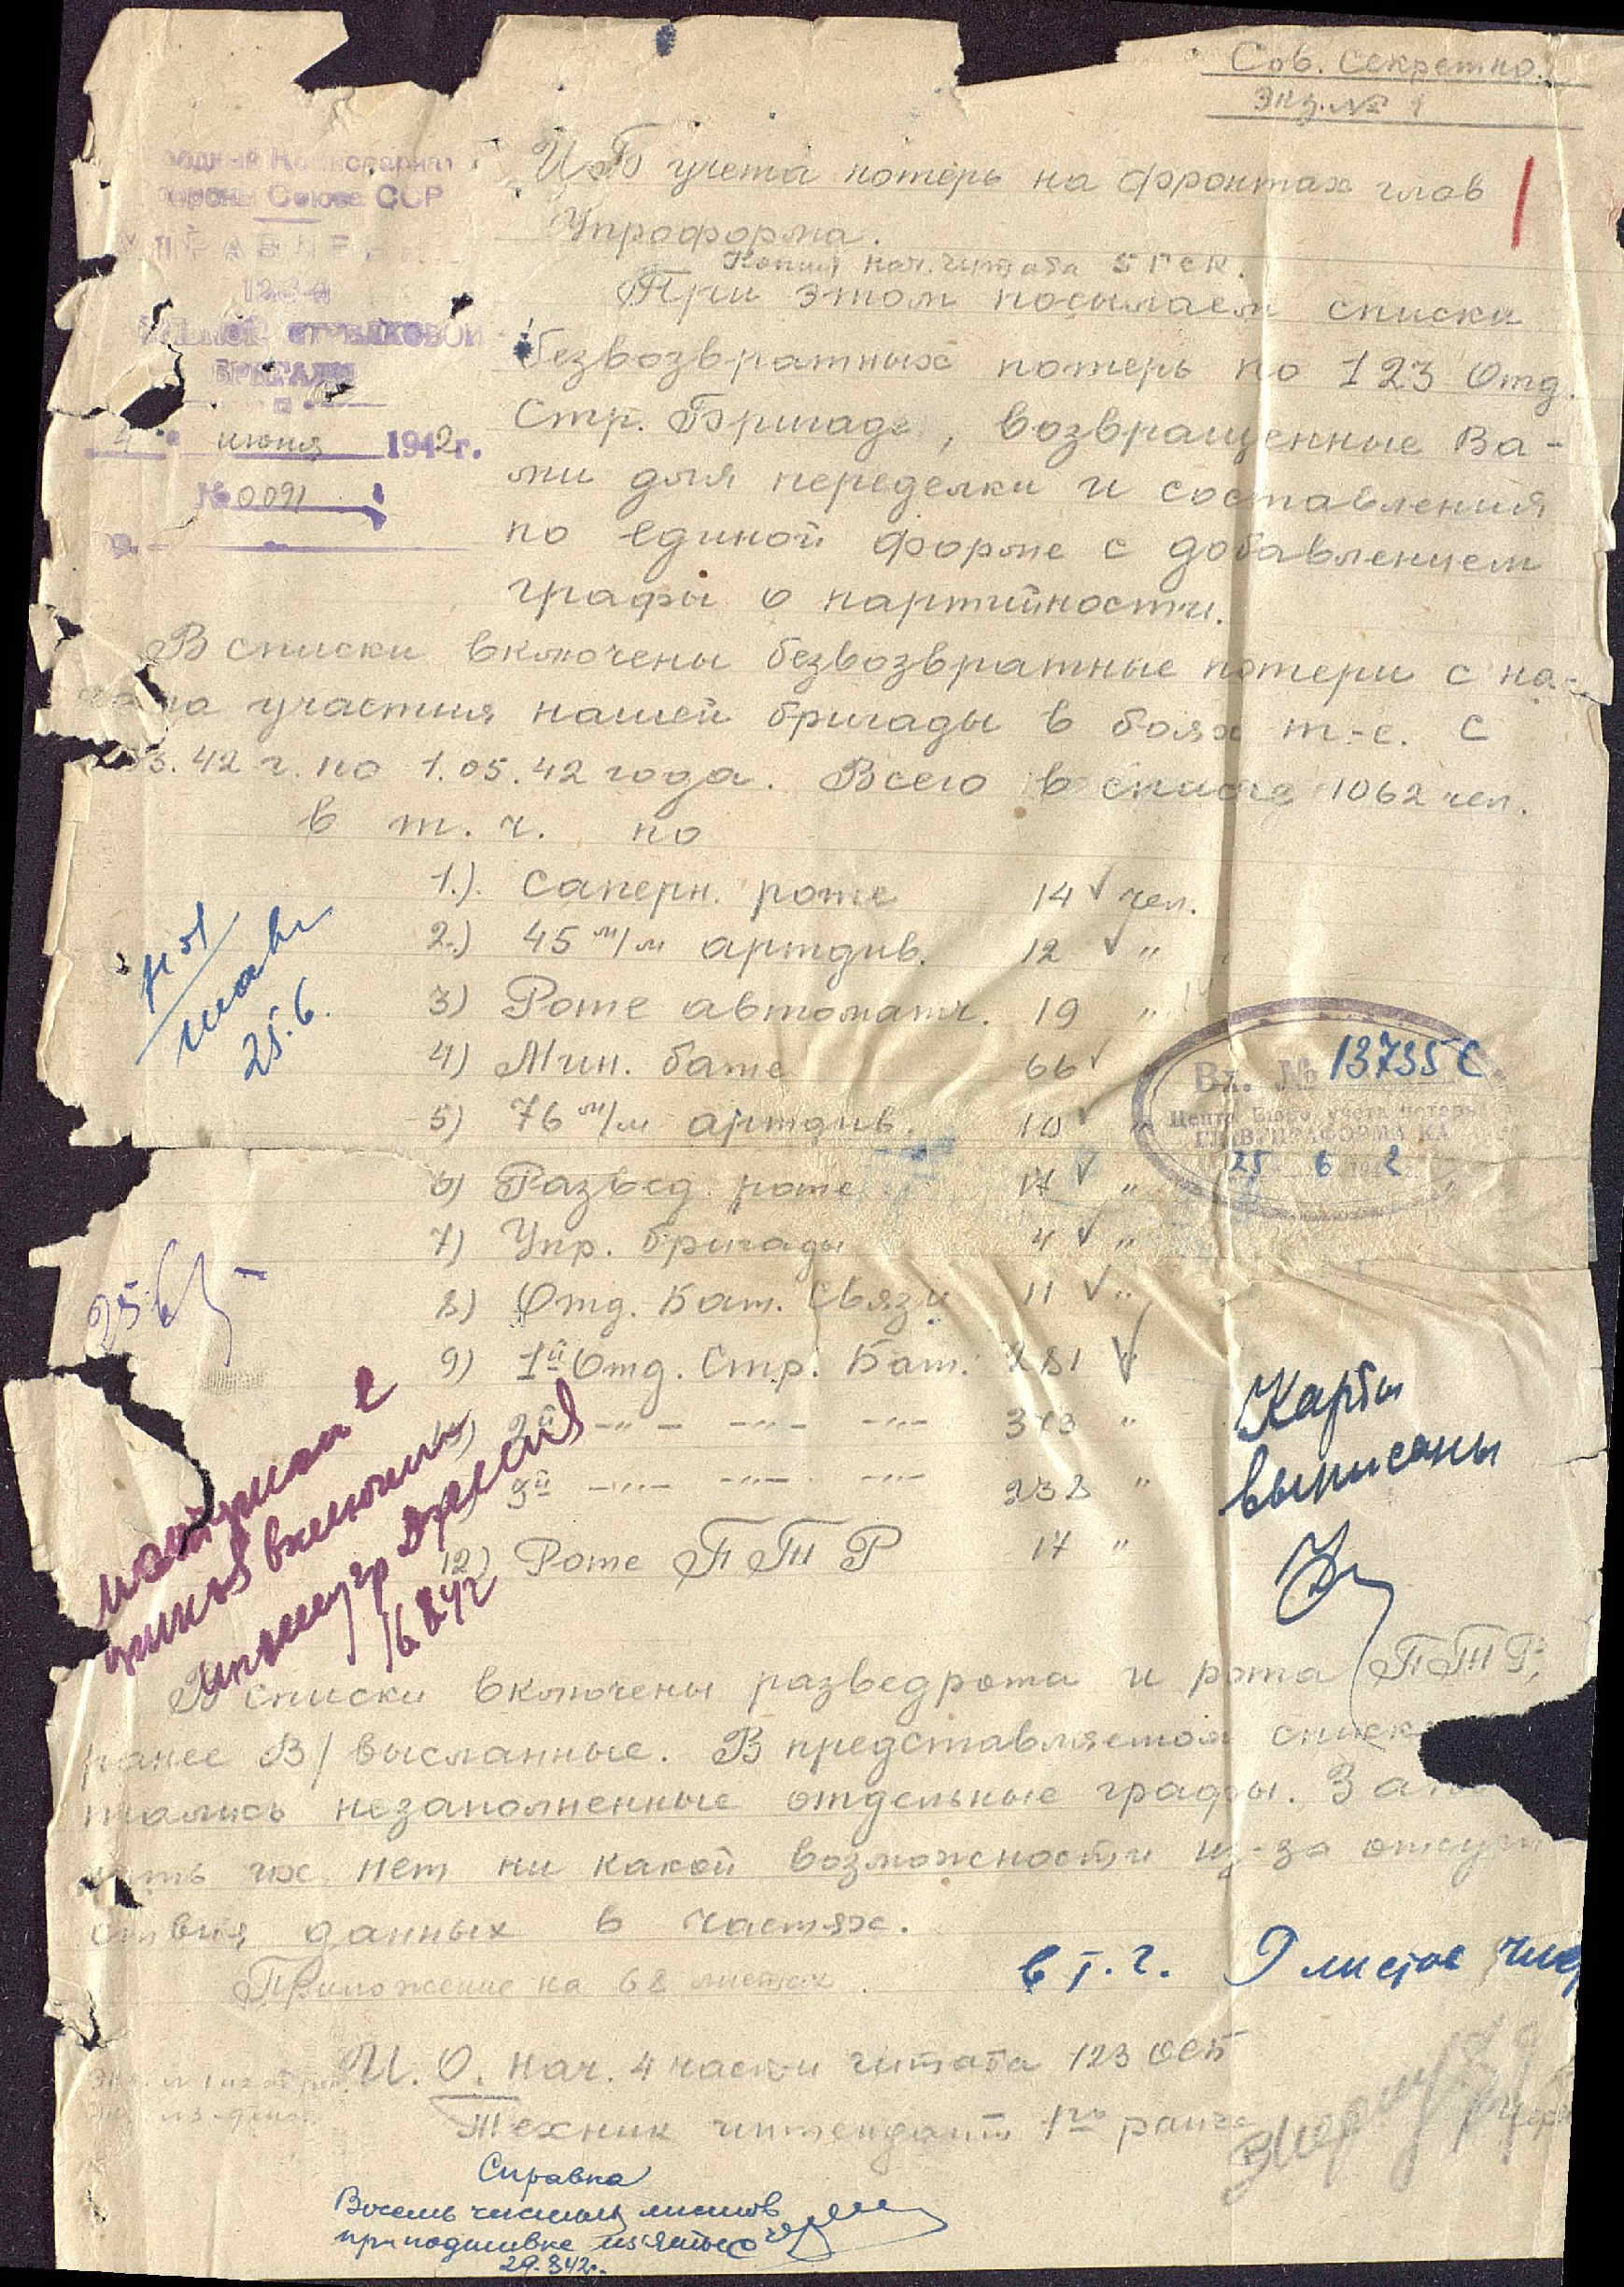 Сов. Секретно.
Экз. № 1
Народный Комиссариат
Обороны Союза ССР
УПРАВЛЕНИЕ
123-й
СТРЕЛКОВОЙ
БРИГАДЫ
4 июня 1942 г.
№ 0091
учета потерь на фронтах глав
Упраформа.
Копия нач. штаба 5 ГСК.
При этом посылаем списки
безвозвратных потерь по 123 Отд.
Стр. Бригаде, возвращенные Ва-
ми для переделки и составления
по единой форме с добавлением
графы о партийности.
В списки включены безвозвратные потери с на-
чала участия нашей бригады в боях т.-е. с
03.42 г. по 1.05.42 года. Всего в списке 1062 чел.
в т. ч. по
1.). Саперн. роте 14 ✓ чел.
2.) 45 м/м артдив. 12 ✓ "
3) Роте автоматч. 19 "
4) Мин. бате 66 ✓
5) 76 м/м артдив. 10 ✓ "
6) Развед. роте 17 ✓ "
7) Упр. бригады 4 ✓ "
8) Отд. Бат. Связи 11 ✓ "
9) 1й Отд. Стр. Бат. 281 ✓
10) 2й -"- -"- -"- 313 "
3й -"- -"- -"- "
12) Роте ПТР 17 "
25.6.
Вх. № 13735 с
Центр. Бюро учета потерь
ГЛАВУПРАФОРМА КА
25 6 1942
25.6
Карты
выписаны
В списки включены разведрота и рота ПТР,
ранее В/ высланные. В представляемом списк
тались незаполненные отдельные графы. Запол
нить их нет ни какой возможности из-за отсут
ствия данных в частях.
Приложение на 68 листах.
в т. ч. 9 листов чис
И. О. нач. 4 части штаба 123 ОСБ
Техник интендант 1го ранга
Справка
Восемь чистых листов
при подшивке изъято
29.8 42г.